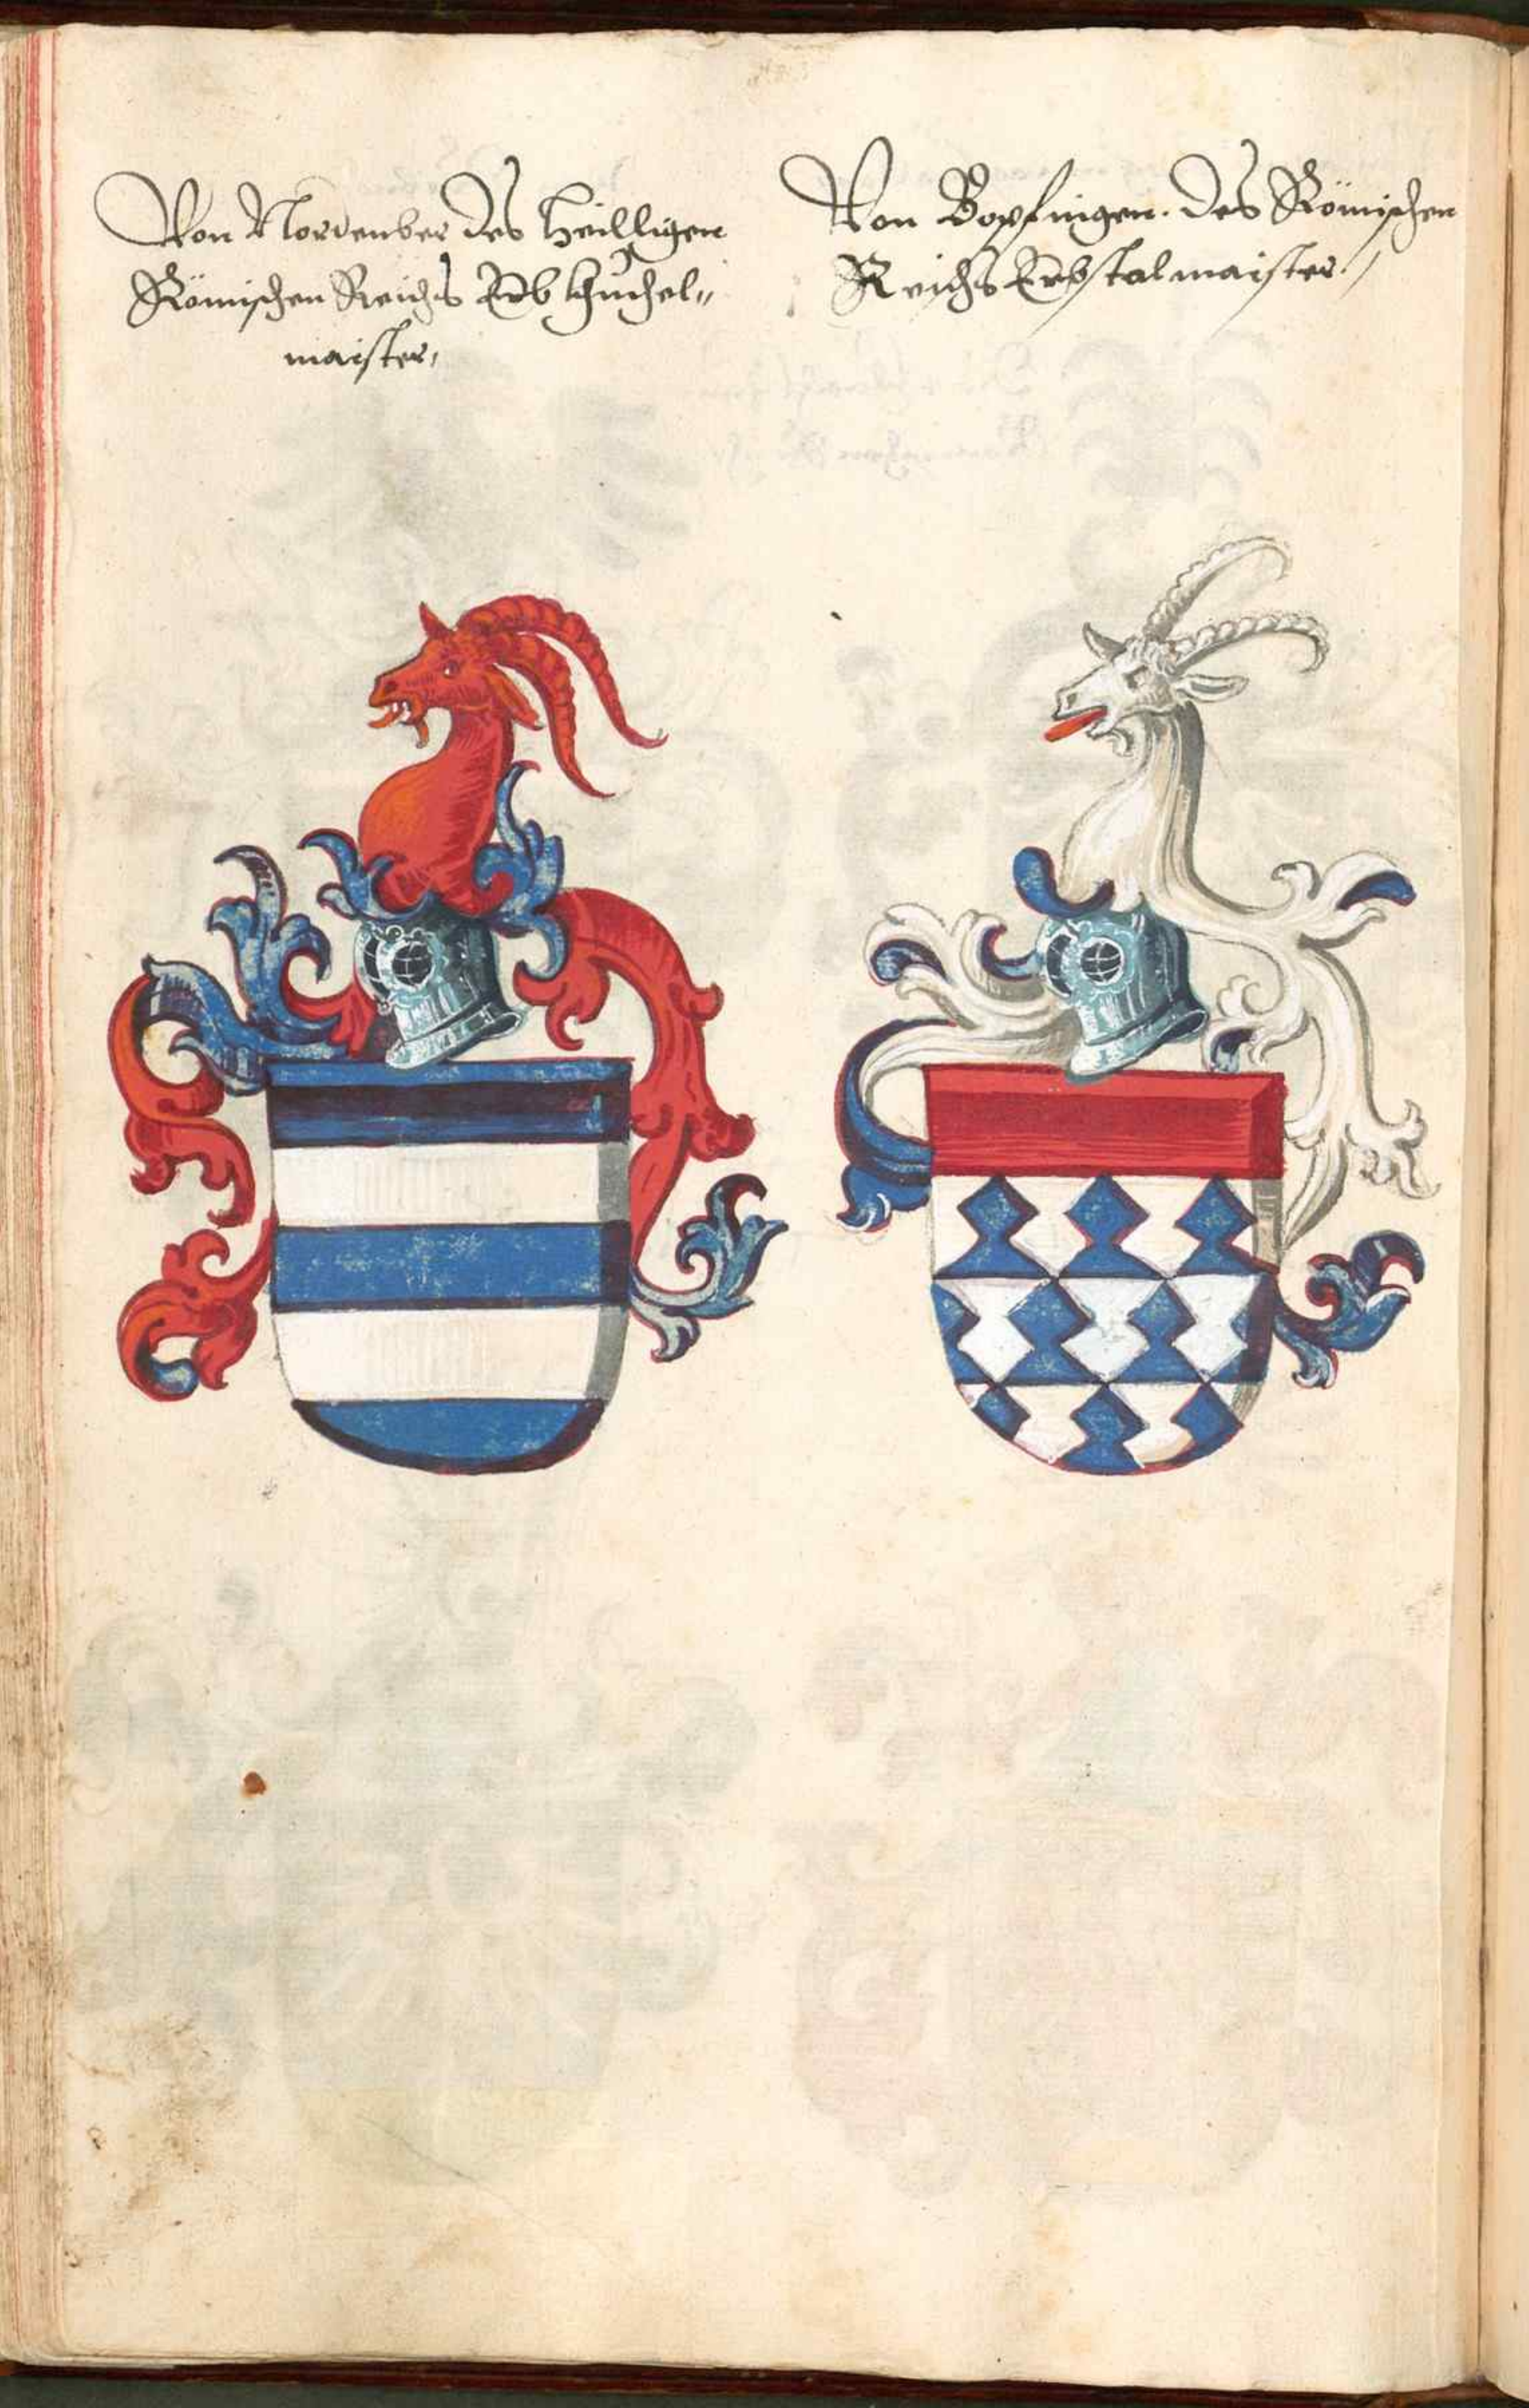 Von Nordenber des heilligen
Römischen Reichs Erb khuchel„
maister,
Von Bopfingen. des Römischen
Reichs Erbstalmaister.